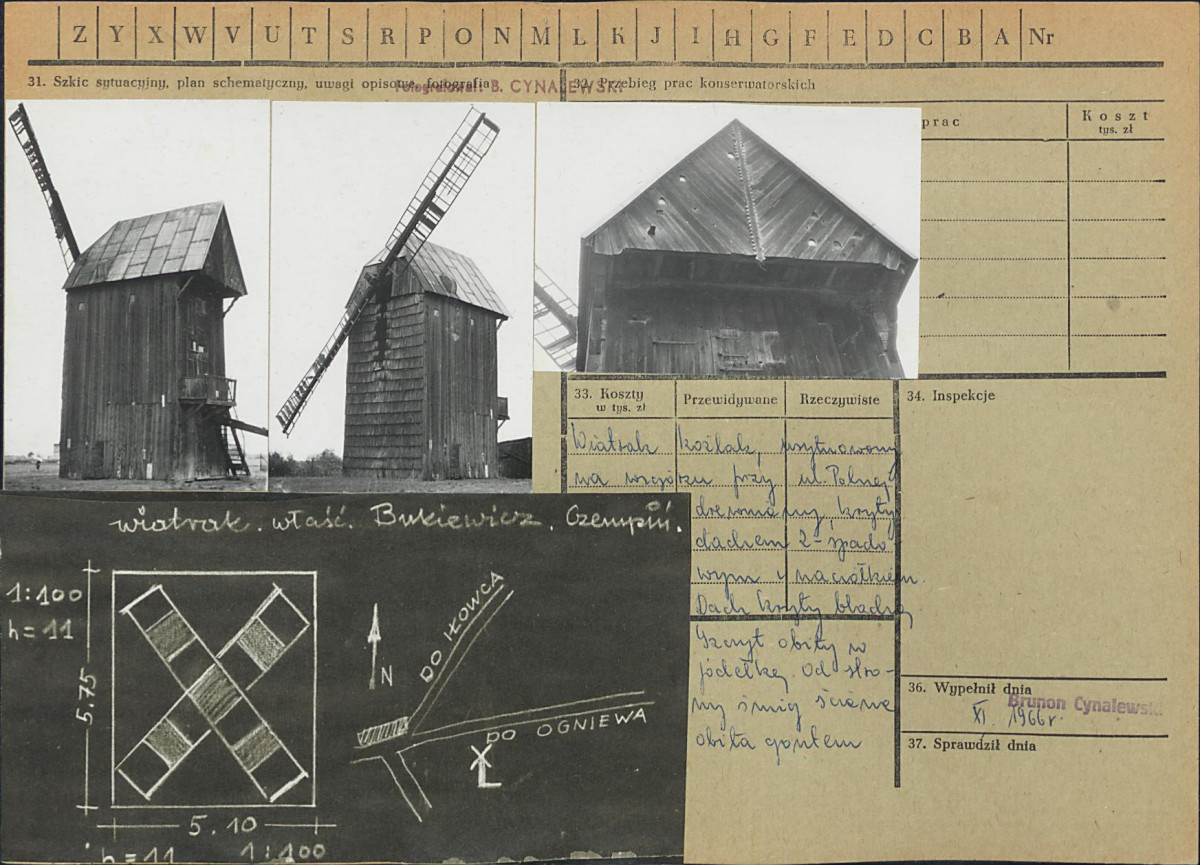 Z Y X W V U T S R P O N M L K J I H G F E D C B A Nr
31. Szkic sytuacyjny, plan schematyczny, uwagi opisowe, fotografia
Fotografował: B. CYNALEWSKI
32. Przebieg prac konserwatorskich
prac
Koszt
tys. zł
33. Koszty
w tys. zł
Przewidywane
Rzeczywiste
34. Inspekcje
Wiatrak koźlak, usytuowany
na wzgórzu przy ul. Polnej
drewniany, kryty
dachem 2-spado
wym z naciółkiem.
Dach kryty blachą
Szczyt obity w
jodełkę. Od stro-
ny śmig ściana
obita gontem
wiatrak. właść. Bukiewicz. Czempiń.
1:100
h=11
5.75
5.10
h=11 1:100
N
DO IŁOWCA
DO OGNIEWA
36. Wypełnił dnia
Brunon Cynalewski
XI. 1966 r.
37. Sprawdził dnia